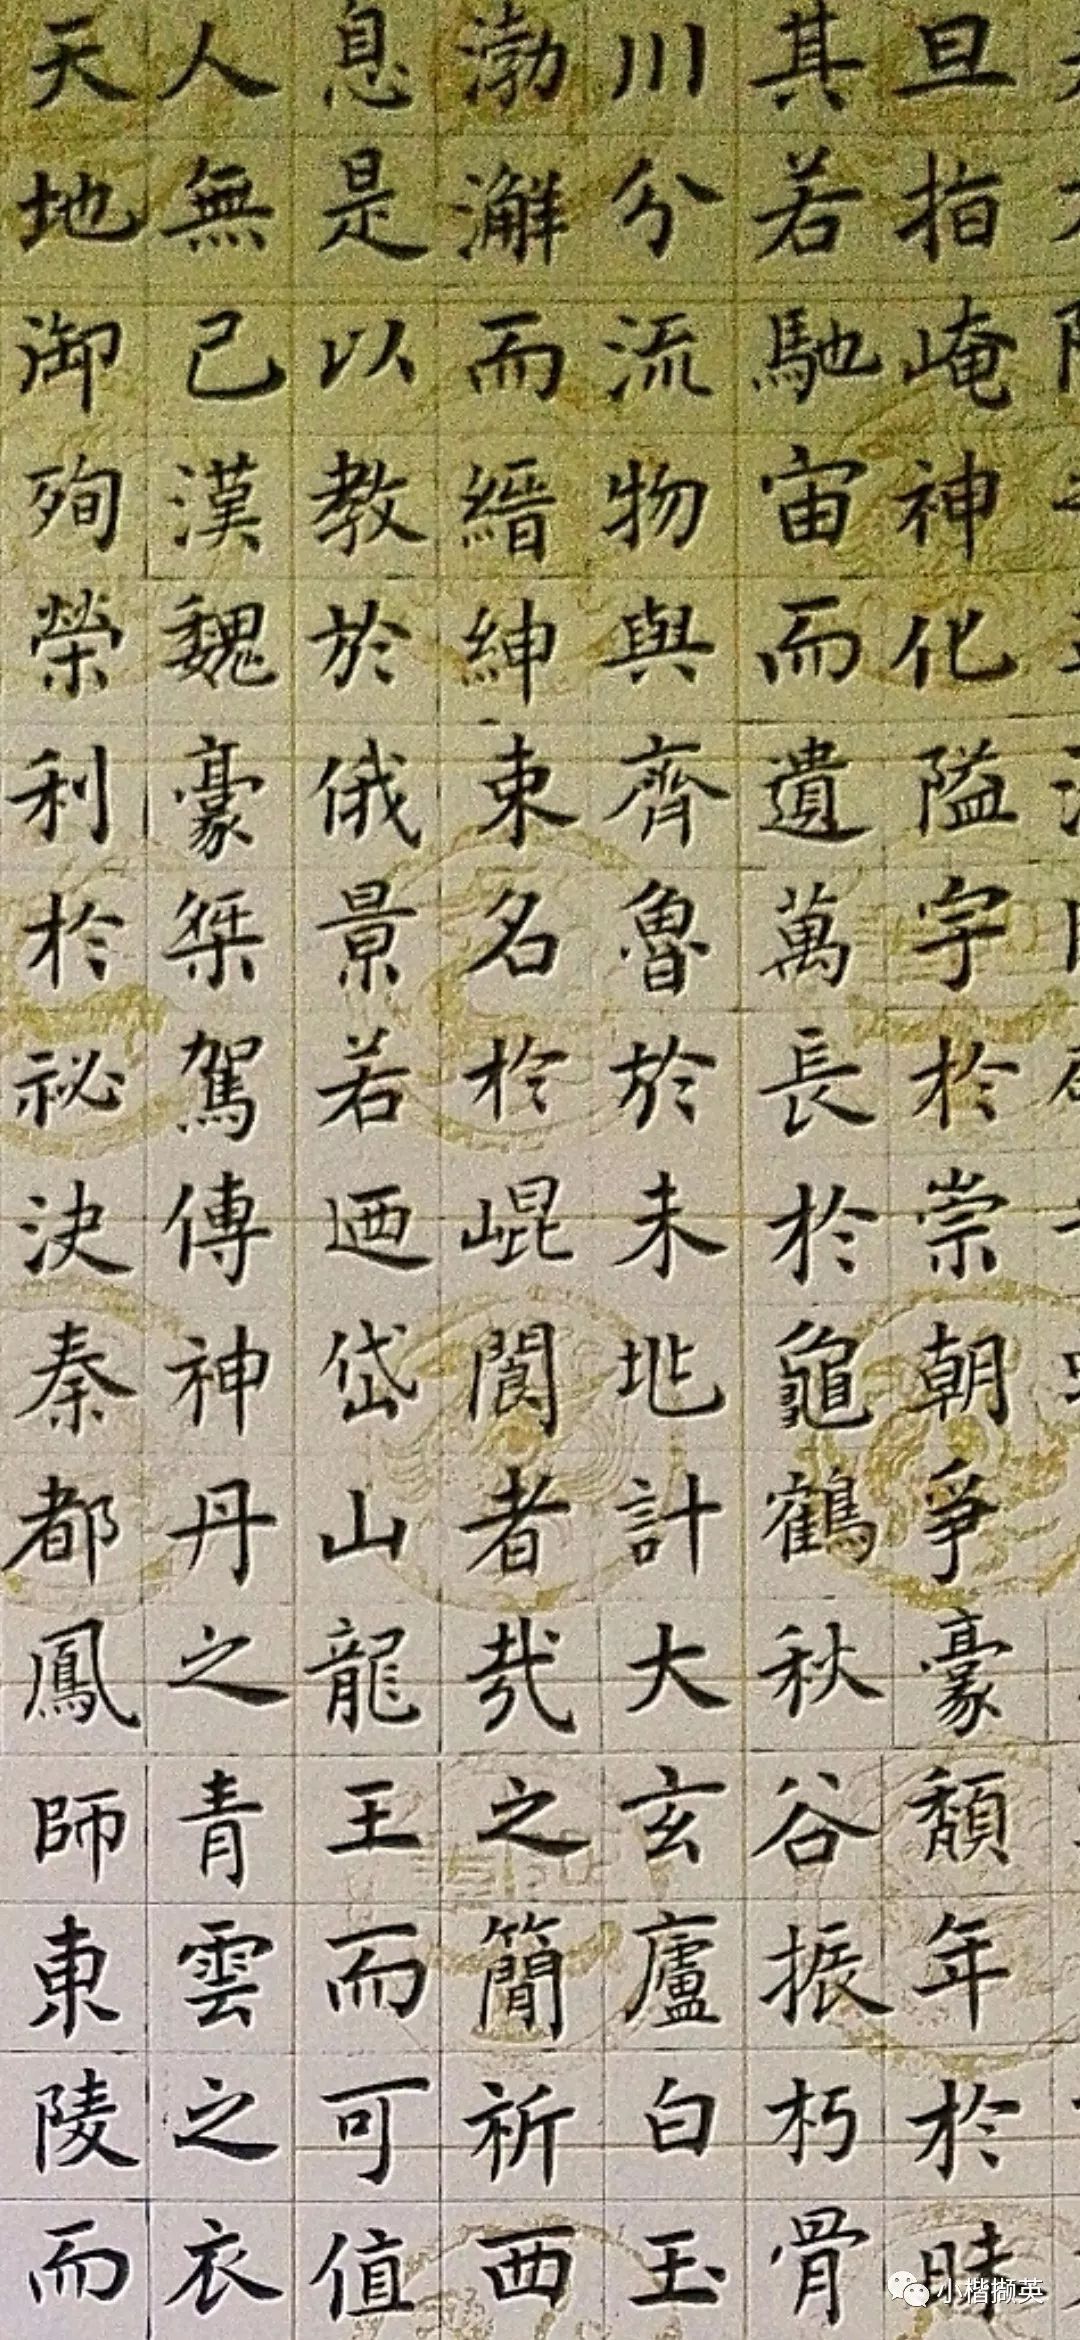 旦指崦神化隘宇於崇朝爭豪頹年於時
其若馳宙而遺萬長於龜鶴秋谷振朽骨
川分流物與齊魯於未地計大玄廬白玉
渤澥而縉紳束名於崐閬者哉之簡祈西
息是以教於俄景若迺岱山龍王而可值
人無已漢魏豪桀駕傳神丹之青雲之衣
天地御殉榮利於祕決秦都鳳師東陵而
小楷撷英